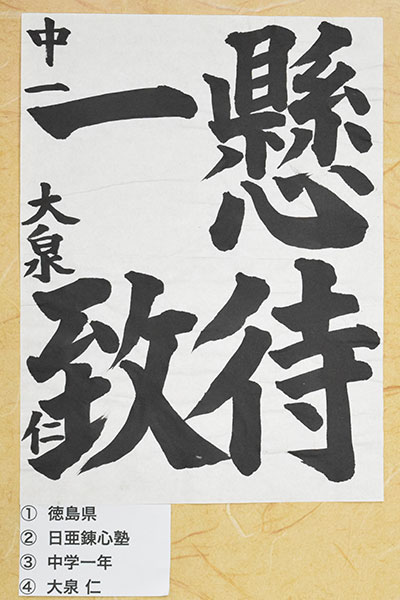 懸待
一致
中一 大泉 仁
① 徳島県
② 日亜錬心塾
③ 中学一年
④ 大泉 仁